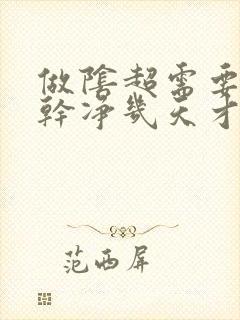 做陰超需要
幹凈幾天才
范西屏